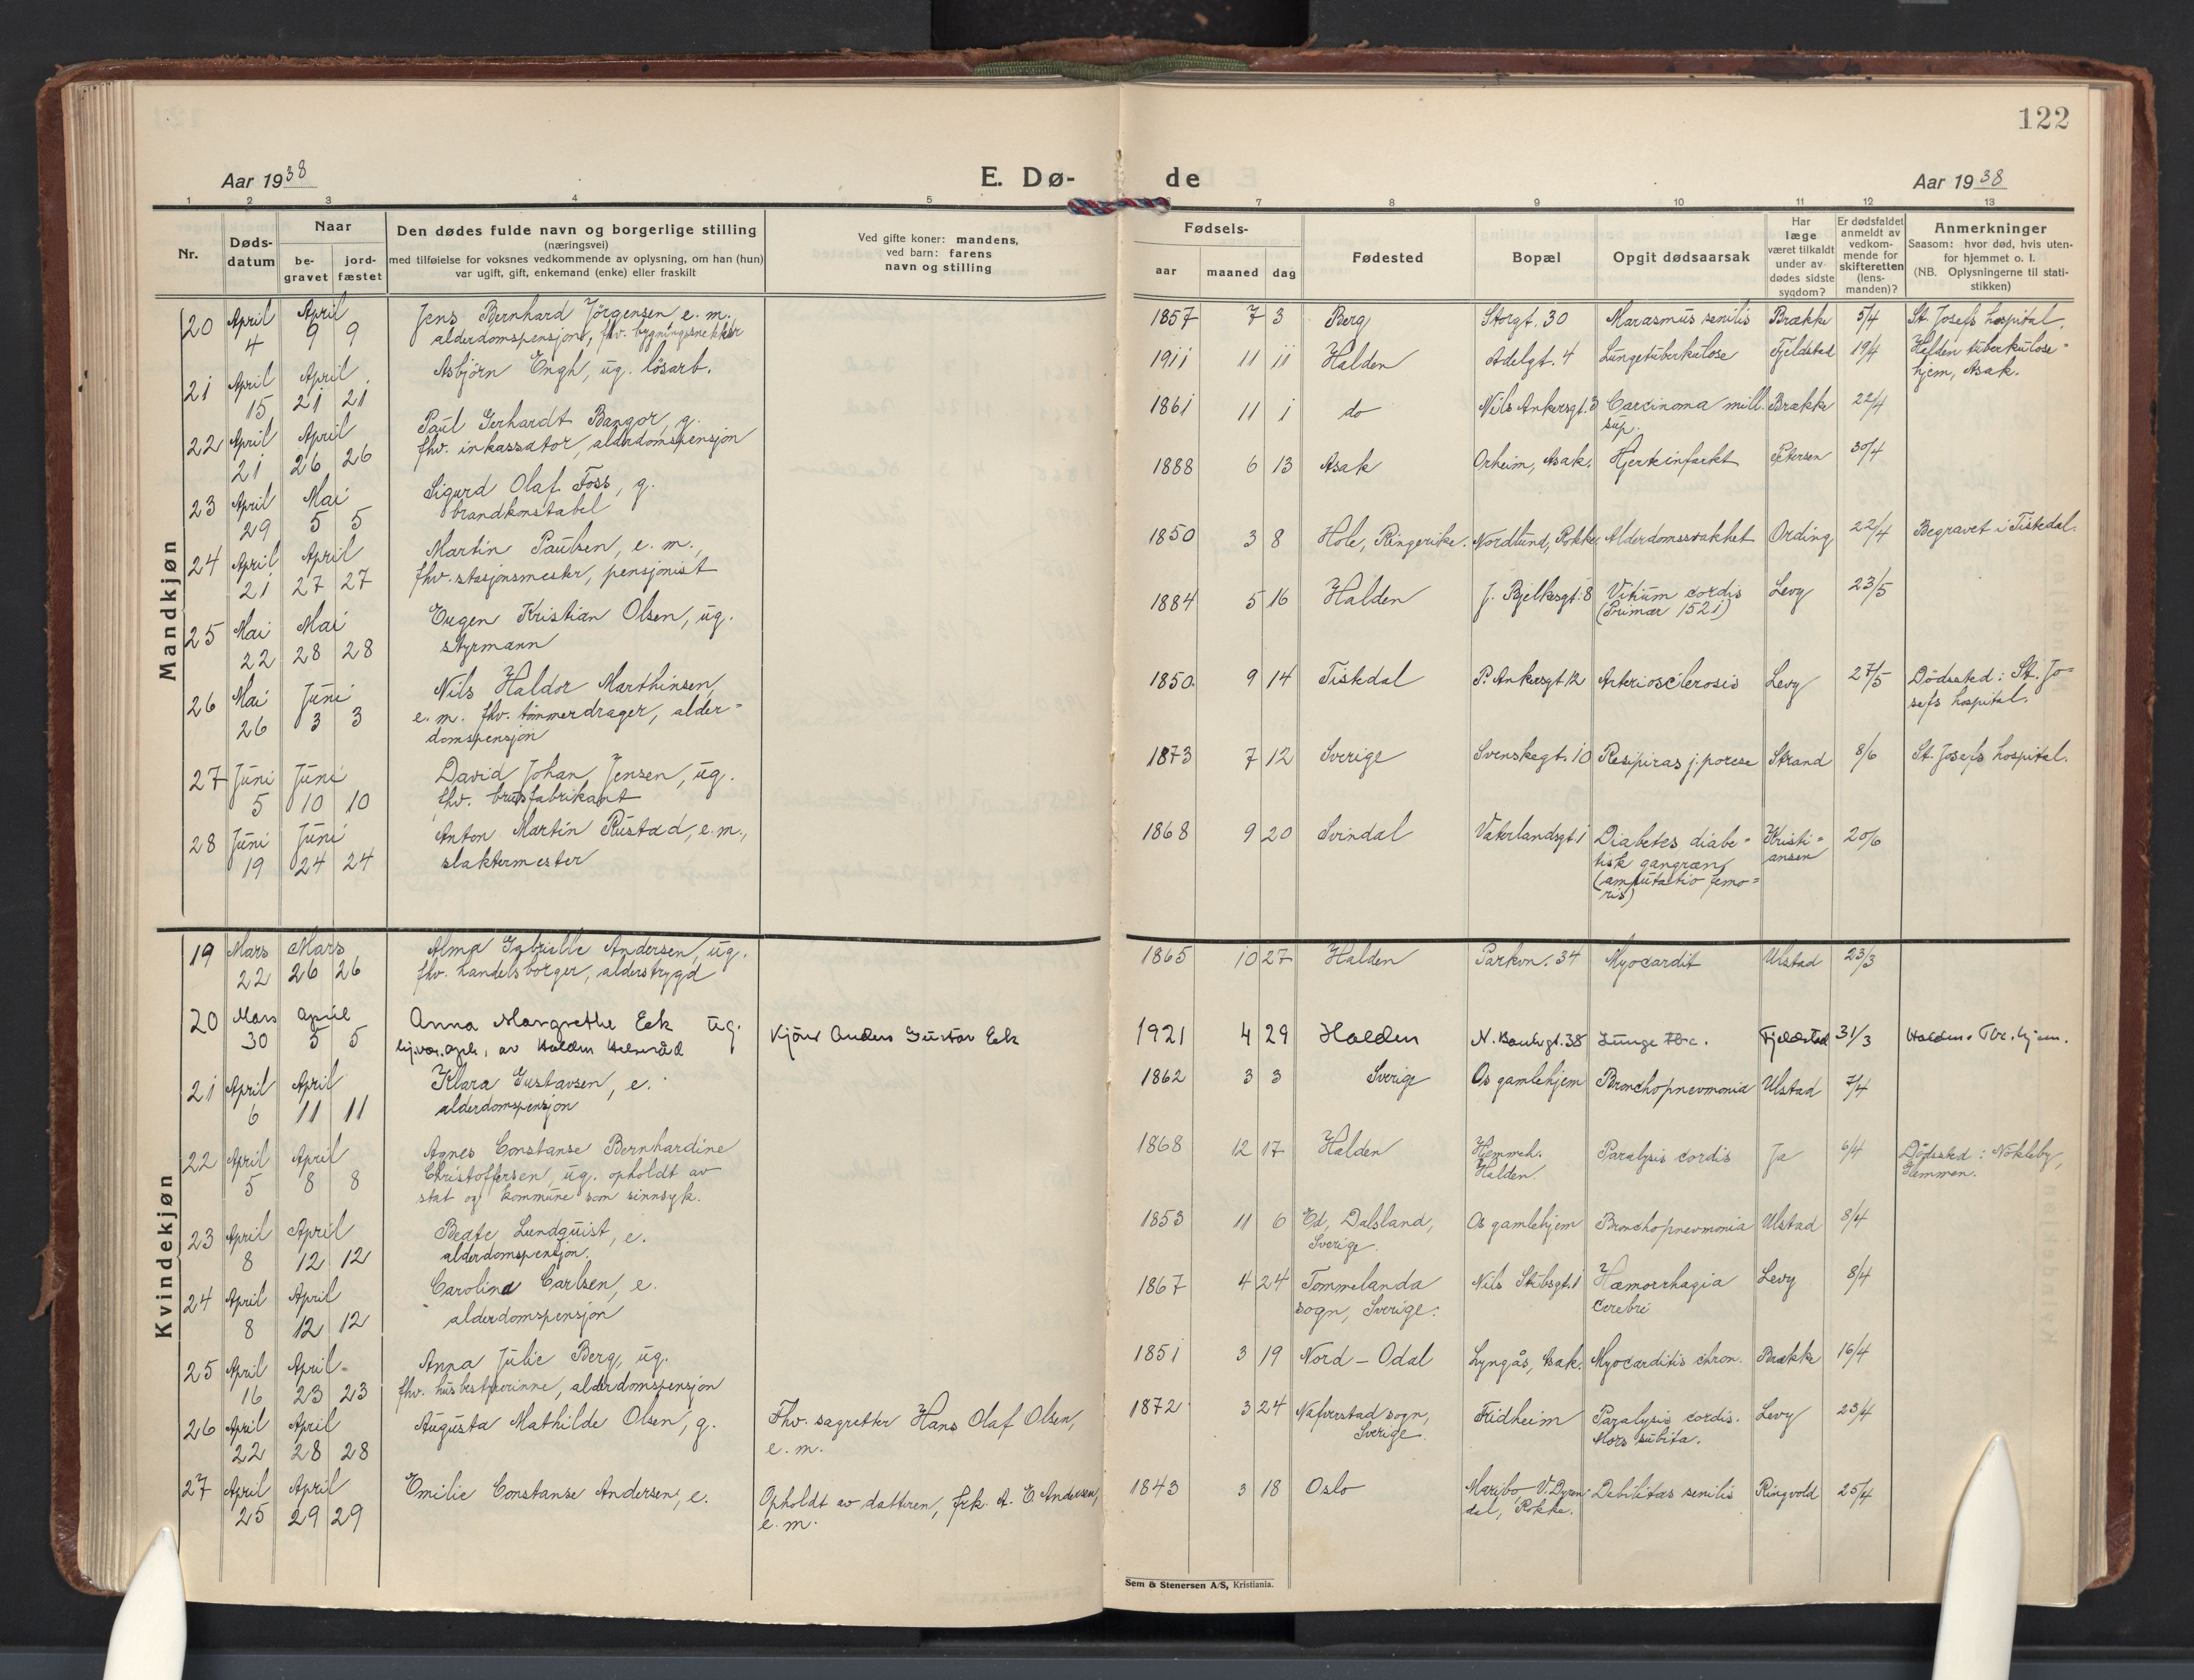 122
Aar 1938
E. Dø-
de
Aar 1938
1 2 3 4 5 6 7 8 9 10 11 12 13
Nr.
Døds-
datum
Naar
be-
gravet
jord-
fæstet
Den dødes fulde navn og borgerlige stilling
(næringsvei)
med tilføielse for voksnes vedkommende av oplysning, om han (hun)
var ugift, gift, enkemand (enke) eller fraskilt
Ved gifte koner: mandens,
ved barn: farens
navn og stilling
Fødsels-
aar maaned dag
Fødested
Bopæl
Opgit dødsaarsak
Har
læge
været tilkaldt
under av-
dødes sidste
sygdom?
Er dødsfaldet
anmeldt av
vedkom-
mende for
skifteretten
(lens-
manden)?
Anmerkninger
Saasom: hvor død, hvis uten-
for hjemmet o. l.
(NB. Oplysningerne til stati-
stikken)
Mandkjøn
20 April April Jens Bernhard Jörgensen e. m. 1857 7 3 Berg Storgt. 30 Marasmus senilis Brække 5/4 St. Josefs hospital.
4 9 9 alderdomspensjon, fhv. bygningssnekker
21 April April Asbjörn Engh, ug. lösarb. 1911 11 11 Halden Adelgt. 4 Lungetuberkulose Fjeldstad 19/4 Halden tuberkulose-
15 21 21 hjem, Asak.
22 April April Paul Gerhardt Bangor, g. 1861 11 1 do Nils Ankersgt. 3 Carcinoma mill. Brække 22/4
21 26 26 fhv. inkassator, alderdomspensjon sup.
23 April Mai Sigurd Olaf Foss, g. 1888 6 13 Asak Orheim, Asak. Hjerteinfarkt Petersen 30/4
29 5 5 brandkonstabel
24 April April Martin Paulsen, e. m., 1850 3 8 Hole, Ringerike. Nordlund, Rokke Alderdomssvakhet Ording 22/4 Begravet i Tistedal.
21 27 27 fhv. stasjonsmester, pensjonist
25 Mai Mai Eugen Kristian Olsen, ug. 1884 5 16 Halden J. Bjelkesgt. 8 Vitium cordis Levy 23/5
22 28 28 styrmann (Primær 1521)
26 Mai Juni Nils Haldor Marthinsen, 1850 9 14 Tistedal P. Ankersgt 12 Arteriosclerosis Levy 27/5 Dödssted: St. Jo-
26 3 3 e. m. fhv. tömmerdrager, alder- sefs hospital.
domspensjon
27 Juni Juni David Johan Jensen, ug. 1873 7 12 Sverige Svenskegt. 10 Strand 8/6 St. Josefs hospital.
5 10 10 fhv. brusfabrikant
28 Juni Juni Anton Martin Rustad, e. m., 1868 9 20 Svindal Vaterlandsgt. 1 Diabetes diabe- Kristi- 20/6
19 24 24 slaktermester tisk gangræn ansen
(amputatio femo-
ris)
Kvindekjøn
19 Mars Mars Alma Gabrielle Andersen, ug. 1865 10 27 Halden Parkvn. 34 Myocardit Ulstad 23/3
22 26 26 fhv. handelsborger, alderstrygd
20 Mars April Anna Margrethe Eek ug. Kjörer Anders Gustav Eek 1921 4 29 Halden N. Bankgt. 38 Lunge Tbc. Fjeldstad 31/3 Haldens Tbc. hjem.
30 5 5 av Halden
21 April April Klara Gustavsen, e. 1862 3 3 Sverige Os gamlehjem Bronchopnevmonia Ulstad 7/4
6 11 11 alderdomspensjon
22 April April Agnes Constanse Bernhardine 1868 12 17 Halden Hjemmeh. Paralysis cordis Ja 6/4 Dödssted: Nökleby,
5 8 8 Christoffersen, ug. opholdt av Halden. Glemmen.
stat og kommune som sinnsyk.
23 April April Beate Lundquist, e. 1853 11 6 Ed, Dalsland, Os gamlehjem Bronchopnevmonia Ulstad 8/4
8 12 12 alderdomspensjon. Sverige.
24 April April Carolina Carlsen, e. 1867 4 24 Tommelanda Nils Stubsgt. 1 Hæmorrhagia Levy 8/4
8 12 12 alderdomspensjon sogn, Sverige. cerebri
25 April April Anna Julie Berg, ug. 1851 3 19 Nord-Odal Lyngås, Asak. Myocarditis chron. Brække 16/4
16 23 23 fhv. husbestyrerinne, alderdomspensjon
26 April April Augusta Mathilde Olsen, g. Fhv. sagretter Hans Olaf Olsen, 1872 3 24 Nafverstad sogn, Fridheim Paralysis cordis. Levy 23/4
22 28 28 e. m. Sverige. Mors subita.
27 April April Emilie Constanse Andersen, e. Opholdt av datteren, frk. A. E. Andersen, 1843 3 18 Oslo Maribo V. Dyren- Debilitas senilis Ringvold 25/4
25 29 29 e. m. dal, Rokke.
Sem & Stenersen A/S, Kristiania.